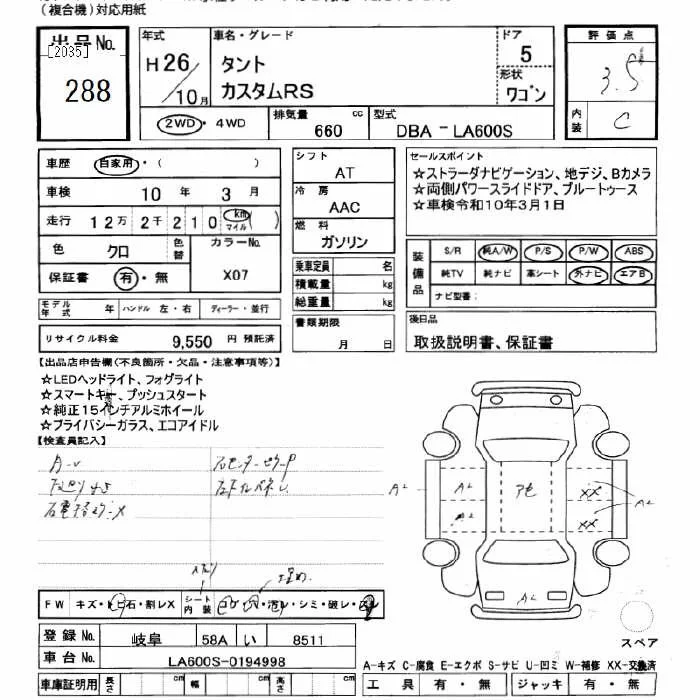 (複合機)対応用紙
出品No.
[2035]
288
年式
H 26/10月
車名・グレード
タント
カスタムRS
ドア
5
形状
ワゴン
評価点
3.5
内装
C
2WD・4WD
排気量
660 cc
型式
DBA-LA600S
車歴 自家用・( )
車検 10 年 3 月
走行 12万 2千 2 1 0 km マイル( )
色 クロ
色替
カラーNo.
X07
保証書 有・無
モデル年式 年 ハンドル 左・右 ディーラー・並行
リサイクル料金 9,550 円 預託済
シフト
AT
冷房
AAC
燃料
ガソリン
乗車定員 名
積載量 kg
総重量 kg
書類期限
月 日
セールスポイント
☆ストラーダナビゲーション、地デジ、Bカメラ
☆両側パワースライドドア、ブルートゥース
☆車検令和10年3月1日
装備品
S/R 純A/W P/S P/W ABS
純TV 純ナビ 革シート 外ナビ エアB
ナビ型番:
後日品
取扱説明書、保証書
【出品店申告欄(不良箇所・欠品・注意事項等)】
☆LEDヘッドライト、フォグライト
☆スマートキー、プッシュスタート
☆純正15インチアルミホイール
☆プライバシーガラス、エコアイドル
【検査員記入】
A2
A2
A2
XX
XX
A2
A2
FW キズ・トビ石・割レX
シート内装
登録No. 岐阜 58A い 8511
車台No. LA600S-0194998
車庫証明用 長さ cm 幅 cm 高さ cm
スペア
A-キズ C-腐食 E-エクボ S-サビ U-凹ミ W-補修 XX-交換済
工具 有・無 ジャッキ 有・無